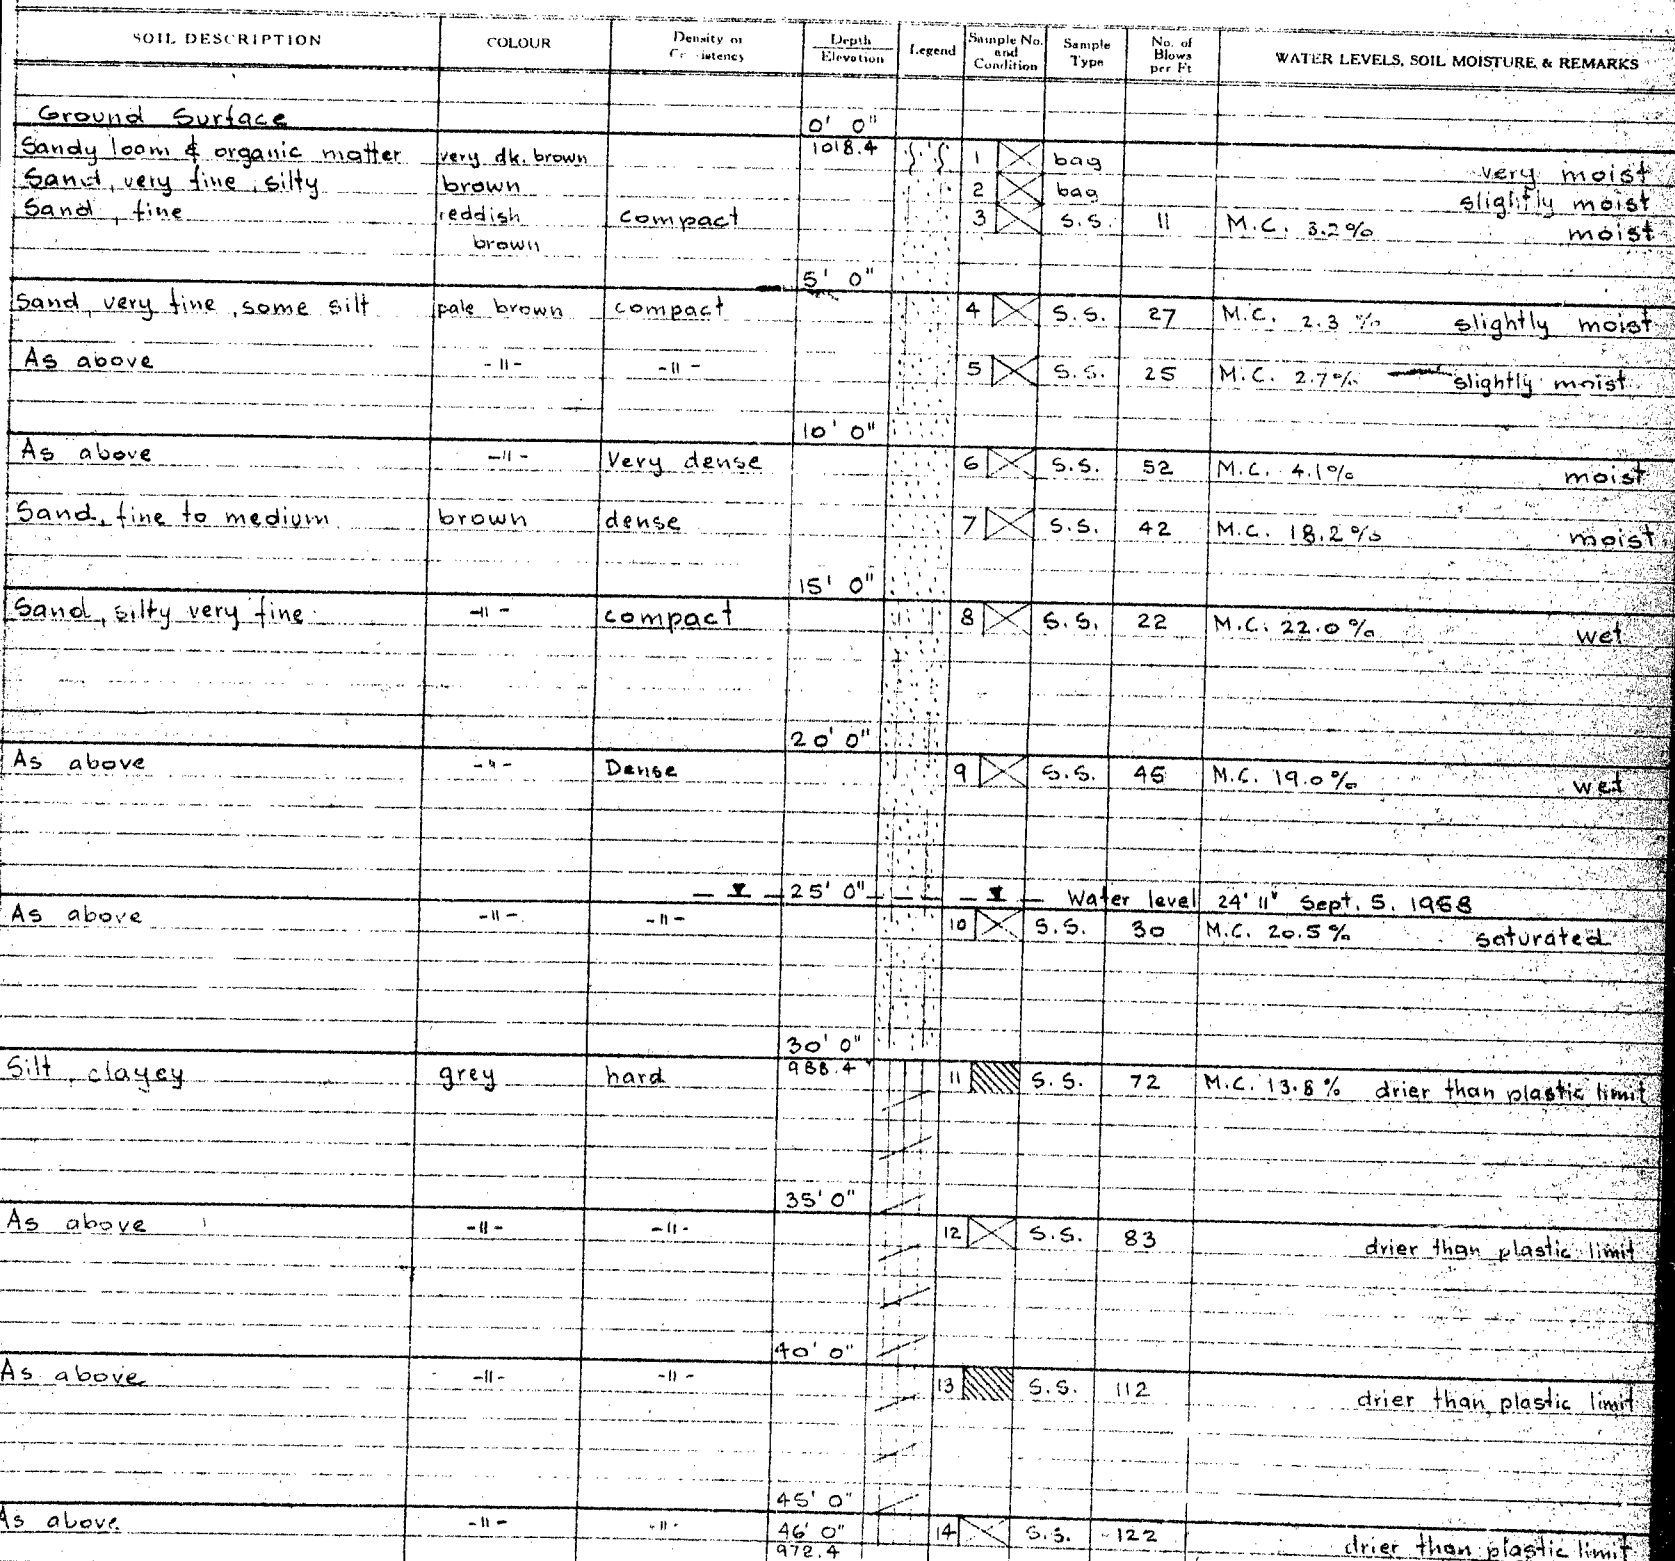 SOIL DESCRIPTION COLOUR Density or Depth Elevation Legend Sample No. and Condition Sample Type No. of Blows per Ft WATER LEVELS, SOIL MOISTURE, & REMARKS
Ground Surface 0' 0"
Sandy loam & organic matter very dk. brown 1018.4 1 bag very moist
Sand, very fine, silty brown 2 bag slightly moist
Sand, fine reddish compact 3 S.S. 11 M.C. 3.2% moist
brown
5' 0"
Sand, very fine, some silt pale brown compact 4 S.S. 27 M.C. 2.3% slightly moist
As above -"- -"- 5 S.S. 25 M.C. 2.7% slightly moist
10' 0"
As above -"- Very dense 6 S.S. 52 M.C. 4.1% moist
Sand, fine to medium brown dense 7 S.S. 42 M.C. 18.2% moist
15' 0"
Sand, silty very fine -"- compact 8 S.S. 22 M.C. 22.0% wet
20' 0"
As above -"- Dense 9 S.S. 45 M.C. 19.0% wet
25' 0" Water level 24' 11" Sept. 5.
As above -"- -"- 10 S.S. 30 M.C. 20.5% saturated
30' 0"
Silt, clayey grey hard 988.4 11 S.S. 72 M.C. 13.8% drier than plastic limit
35' 0"
As above -"- -"- 12 S.S. 83 drier than plastic limit
40' 0"
As above -"- -"- 13 S.S. 112 drier than plastic limit
45' 0"
As above -"- -"- 46' 0" 14 S.S. 122 drier than plastic limit
972.4